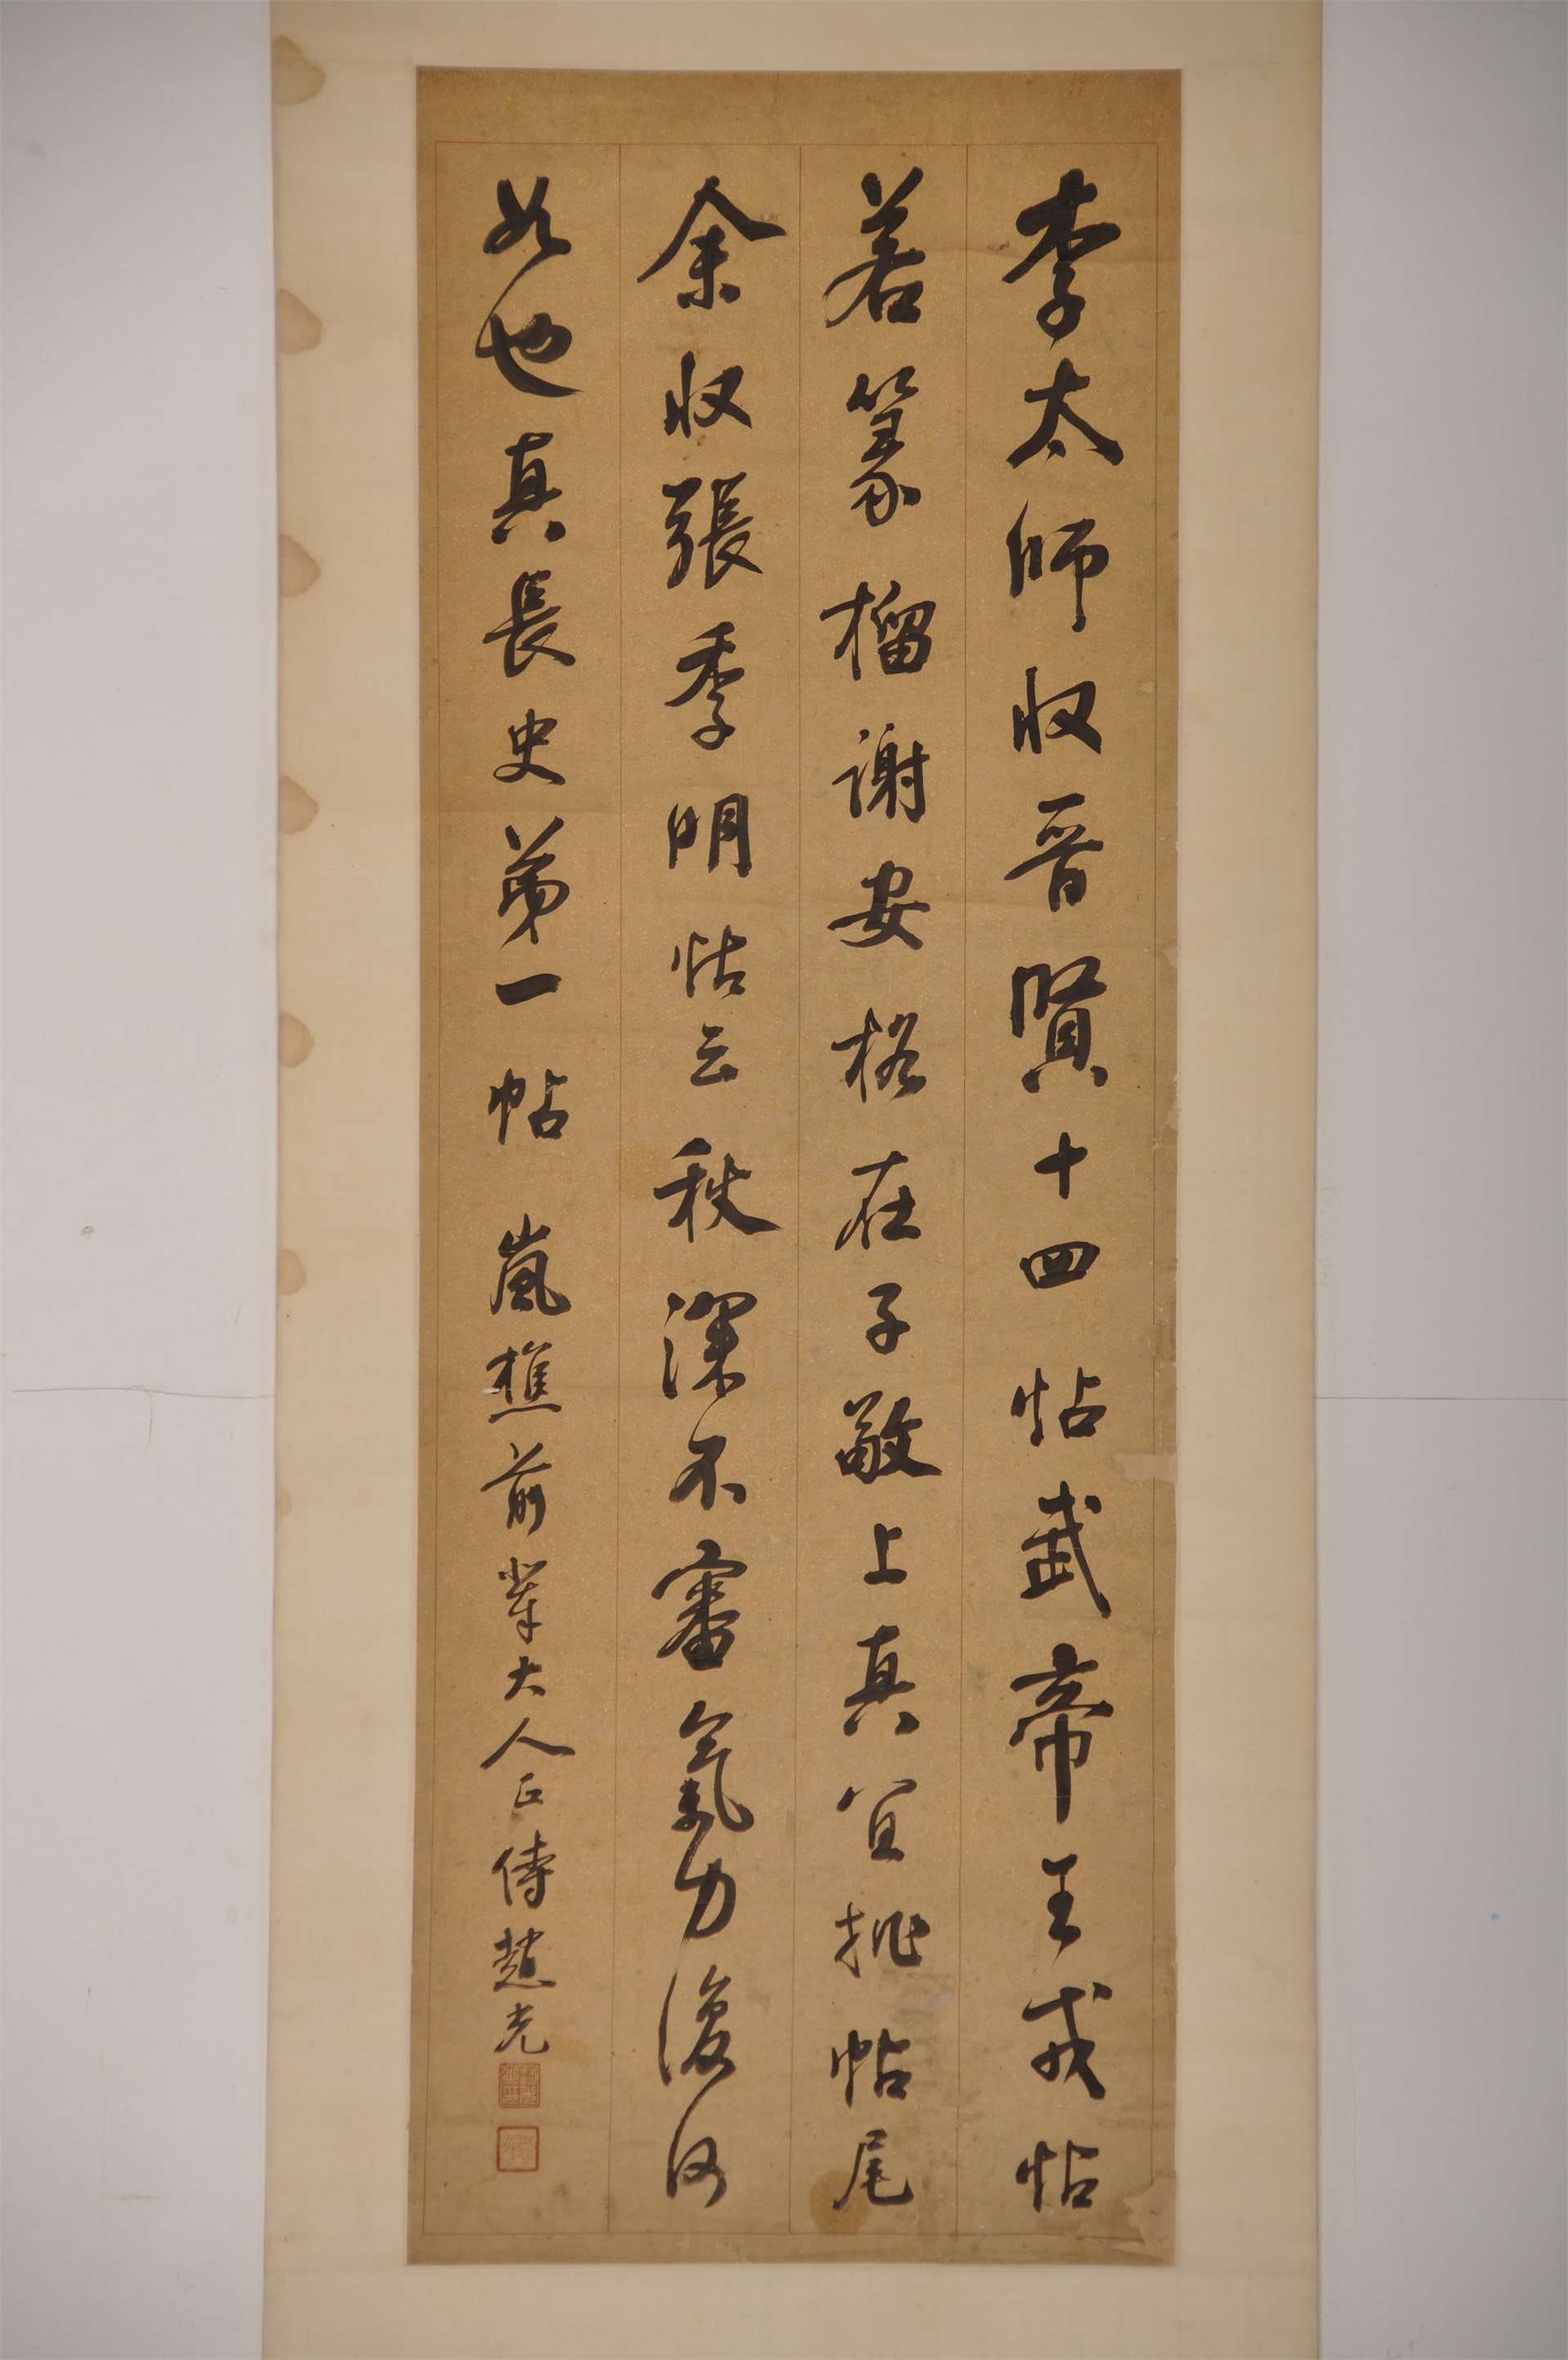 李太師收晉賢十四帖武帝王戎帖
若篆榴謝安格在子敬上真宜批帖尾
余收張季明帖云秋深不審氣力復何
如也真長史第一帖 嵐樵前輩大人正 傅趙光